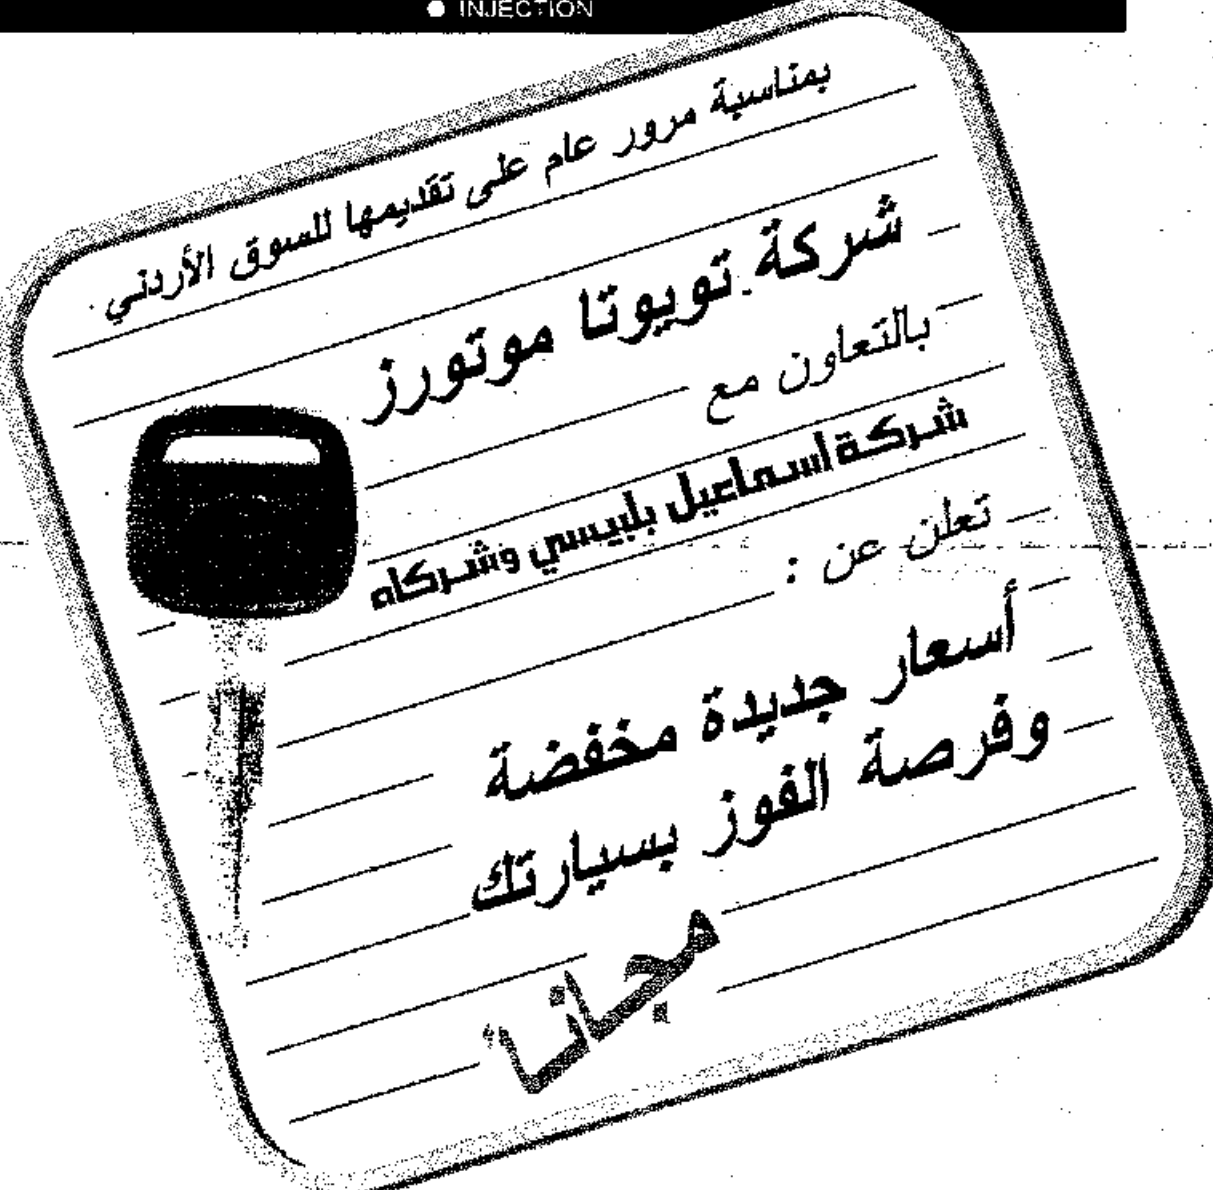 ● INJECTION
بمناسبة مرور عام على تقديمها للسوق الأردني
شركة تويوتا موتورز
بالتعاون مع
شركة اسماعيل بلبيسي وشركاه
تعلن عن :
أسعار جديدة مخفضة
وفرصة الفوز بسيارتك
مجاناً